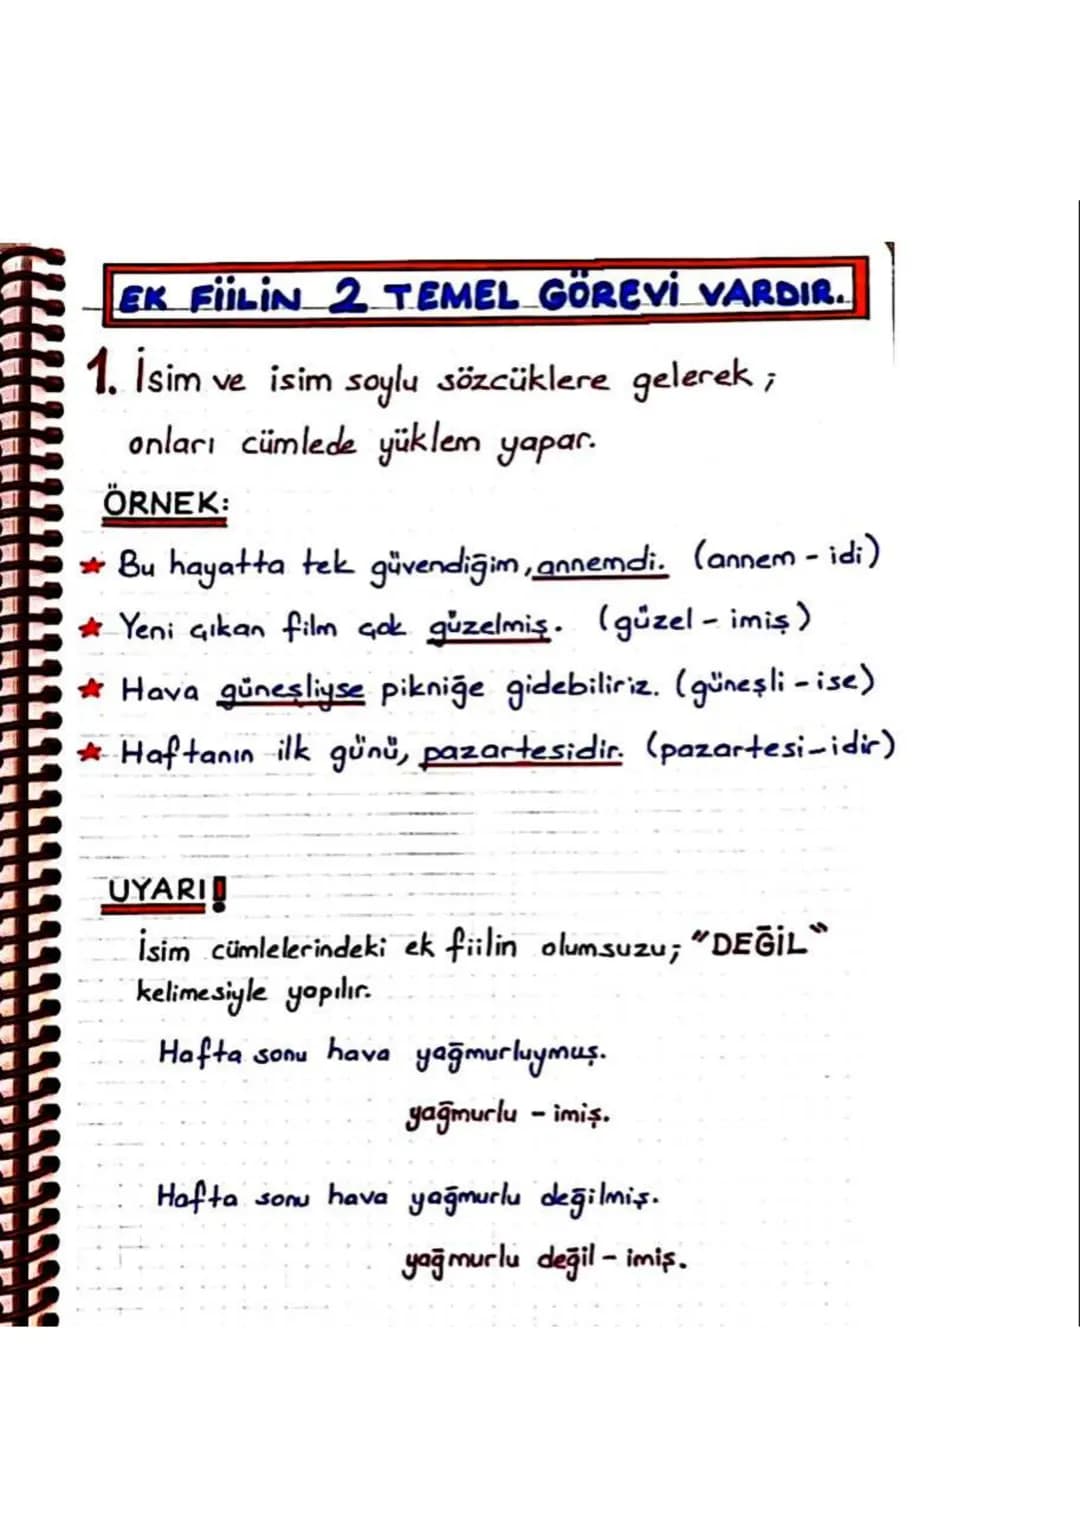 EK FİİLİN 2 TEMEL GÖREVİ VARDIR.
1. İsim ve isim soylu sözcüklere gelerek;
onları cümlede yüklem yapar.
ÖRNEK:
★ Bu hayatta tek güvendiğim, annemdi. (annem - idi)
★ Yeni çıkan film çok güzelmiş. (güzel - imiş)
★ Hava güneşliyse pikniğe gidebiliriz. (güneşli - ise)
★ Haftanın ilk günü, pazartesidir. (pazartesi-idir)
UYARI!
İsim cümlelerindeki ek fiilin olumsuzu; "DEĞİL"
kelimesiyle yapılır.
Hafta sonu hava yağmurluymuş.
yağmurlu - imiş.
Hafta sonu hava yağmurlu değilmiş.
yağmurlu değil - imiş.